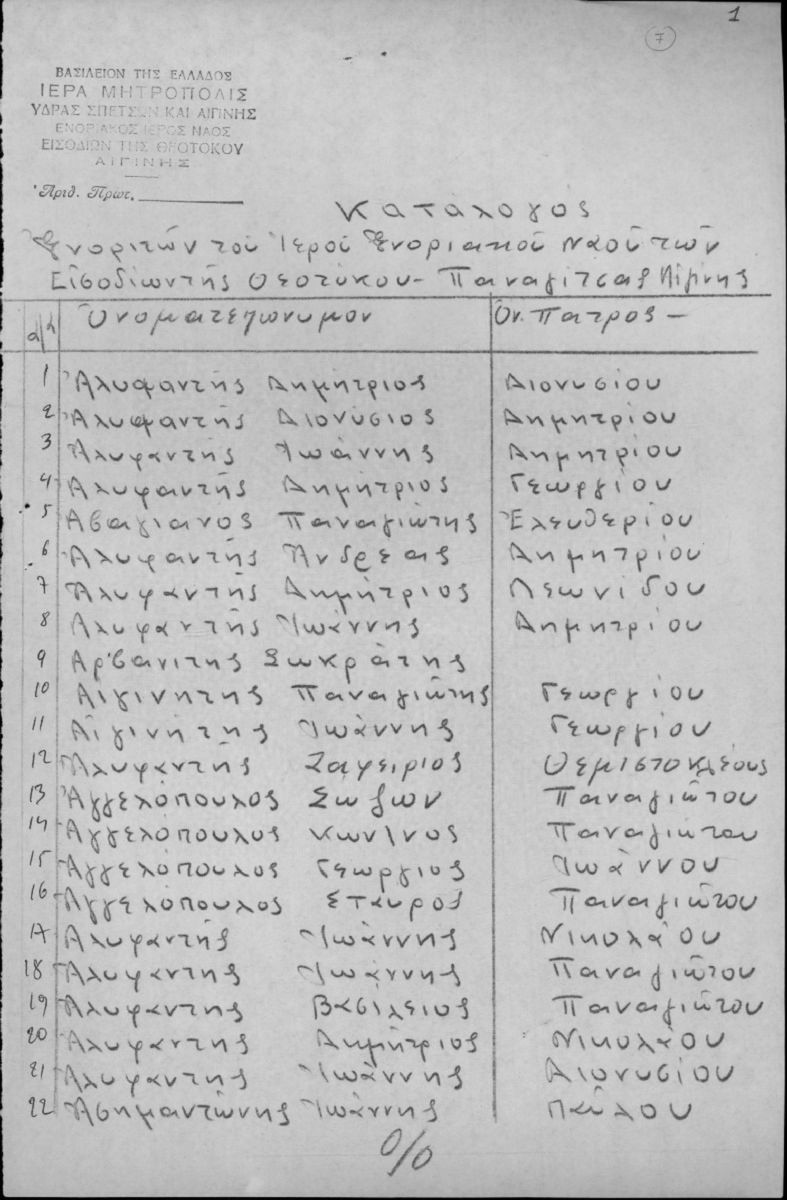 1
7
ΒΑΣΙΛΕΙΟΝ ΤΗΣ ΕΛΛΑΔΟΣ
ΙΕΡΑ ΜΗΤΡΟΠΟΛΙΣ
ΥΔΡΑΣ ΣΠΕΤΣΩΝ ΚΑΙ ΑΙΓΙΝΗΣ
ΕΝΟΡΙΑΚΟΣ ΙΕΡΟΣ ΝΑΟΣ
ΕΙΣΟΔΙΩΝ ΤΗΣ ΘΕΟΤΟΚΟΥ
ΑΙΓΙΝΗΣ
Ἀριθ. Πρωτ.
Κατάλογος
Ἐνοριτῶν τοῦ Ἱεροῦ Ἐνοριακοῦ Ναοῦ τῶν
Εἰσοδίων τῆς Θεοτόκου - Παναγίτσας Αἰγίνης
α/α Ὀνοματεπώνυμον Ὀν. Πατρός -
1 Ἀλυφαντής Δημήτριος Διονυσίου
2 Ἀλυφαντής Διονύσιος Δημητρίου
3 Ἀλυφαντής Ἰωάννης Δημητρίου
4 Ἀλυφαντής Δημήτριος Γεωργίου
5 Αβαγιανος Παναγιώτης Ἐλευθερίου
6 Ἀλυφαντῆς Ἀνδρέας Δημητρίου
7 Ἀλυφαντῆς Δημήτριος Λεωνίδου
8 Ἀλυφαντῆς Ἰωάννης Δημητρίου
9 Αρβανιτης Σωκράτης
10 Αἰγινητης Παναγιώτης Γεωργίου
11 Αἰγινήτης Ἰωάννης Γεωργίου
12 Ἀλυφαντῆς Ζαφειριος Θεμιστοκλέους
13 Ἀγγελόπουλος Σωζων Παναγιώτου
14 Ἀγγελόπουλος Κων/νος Παναγιώτου
15 Ἀγγελόπουλος Γεωργιος Ἰωάννου
16 Ἀγγελόπουλος Σταυρος Παναγιώτου
17 Ἀλυφαντής Ἰωάννης Νικολάου
18 Ἀλυφαντης Ἰωάννης Παναγιώτου
19 Ἀλυφαντης Βασίλειος Παναγιώτου
20 Ἀλυφαντης Δημήτριος Νικολάου
21 Ἀλυφαντῆς Ἰωάννης Διονυσίου
22 Ἀσημαντώνης Ἰωάννης Παύλου
0/0